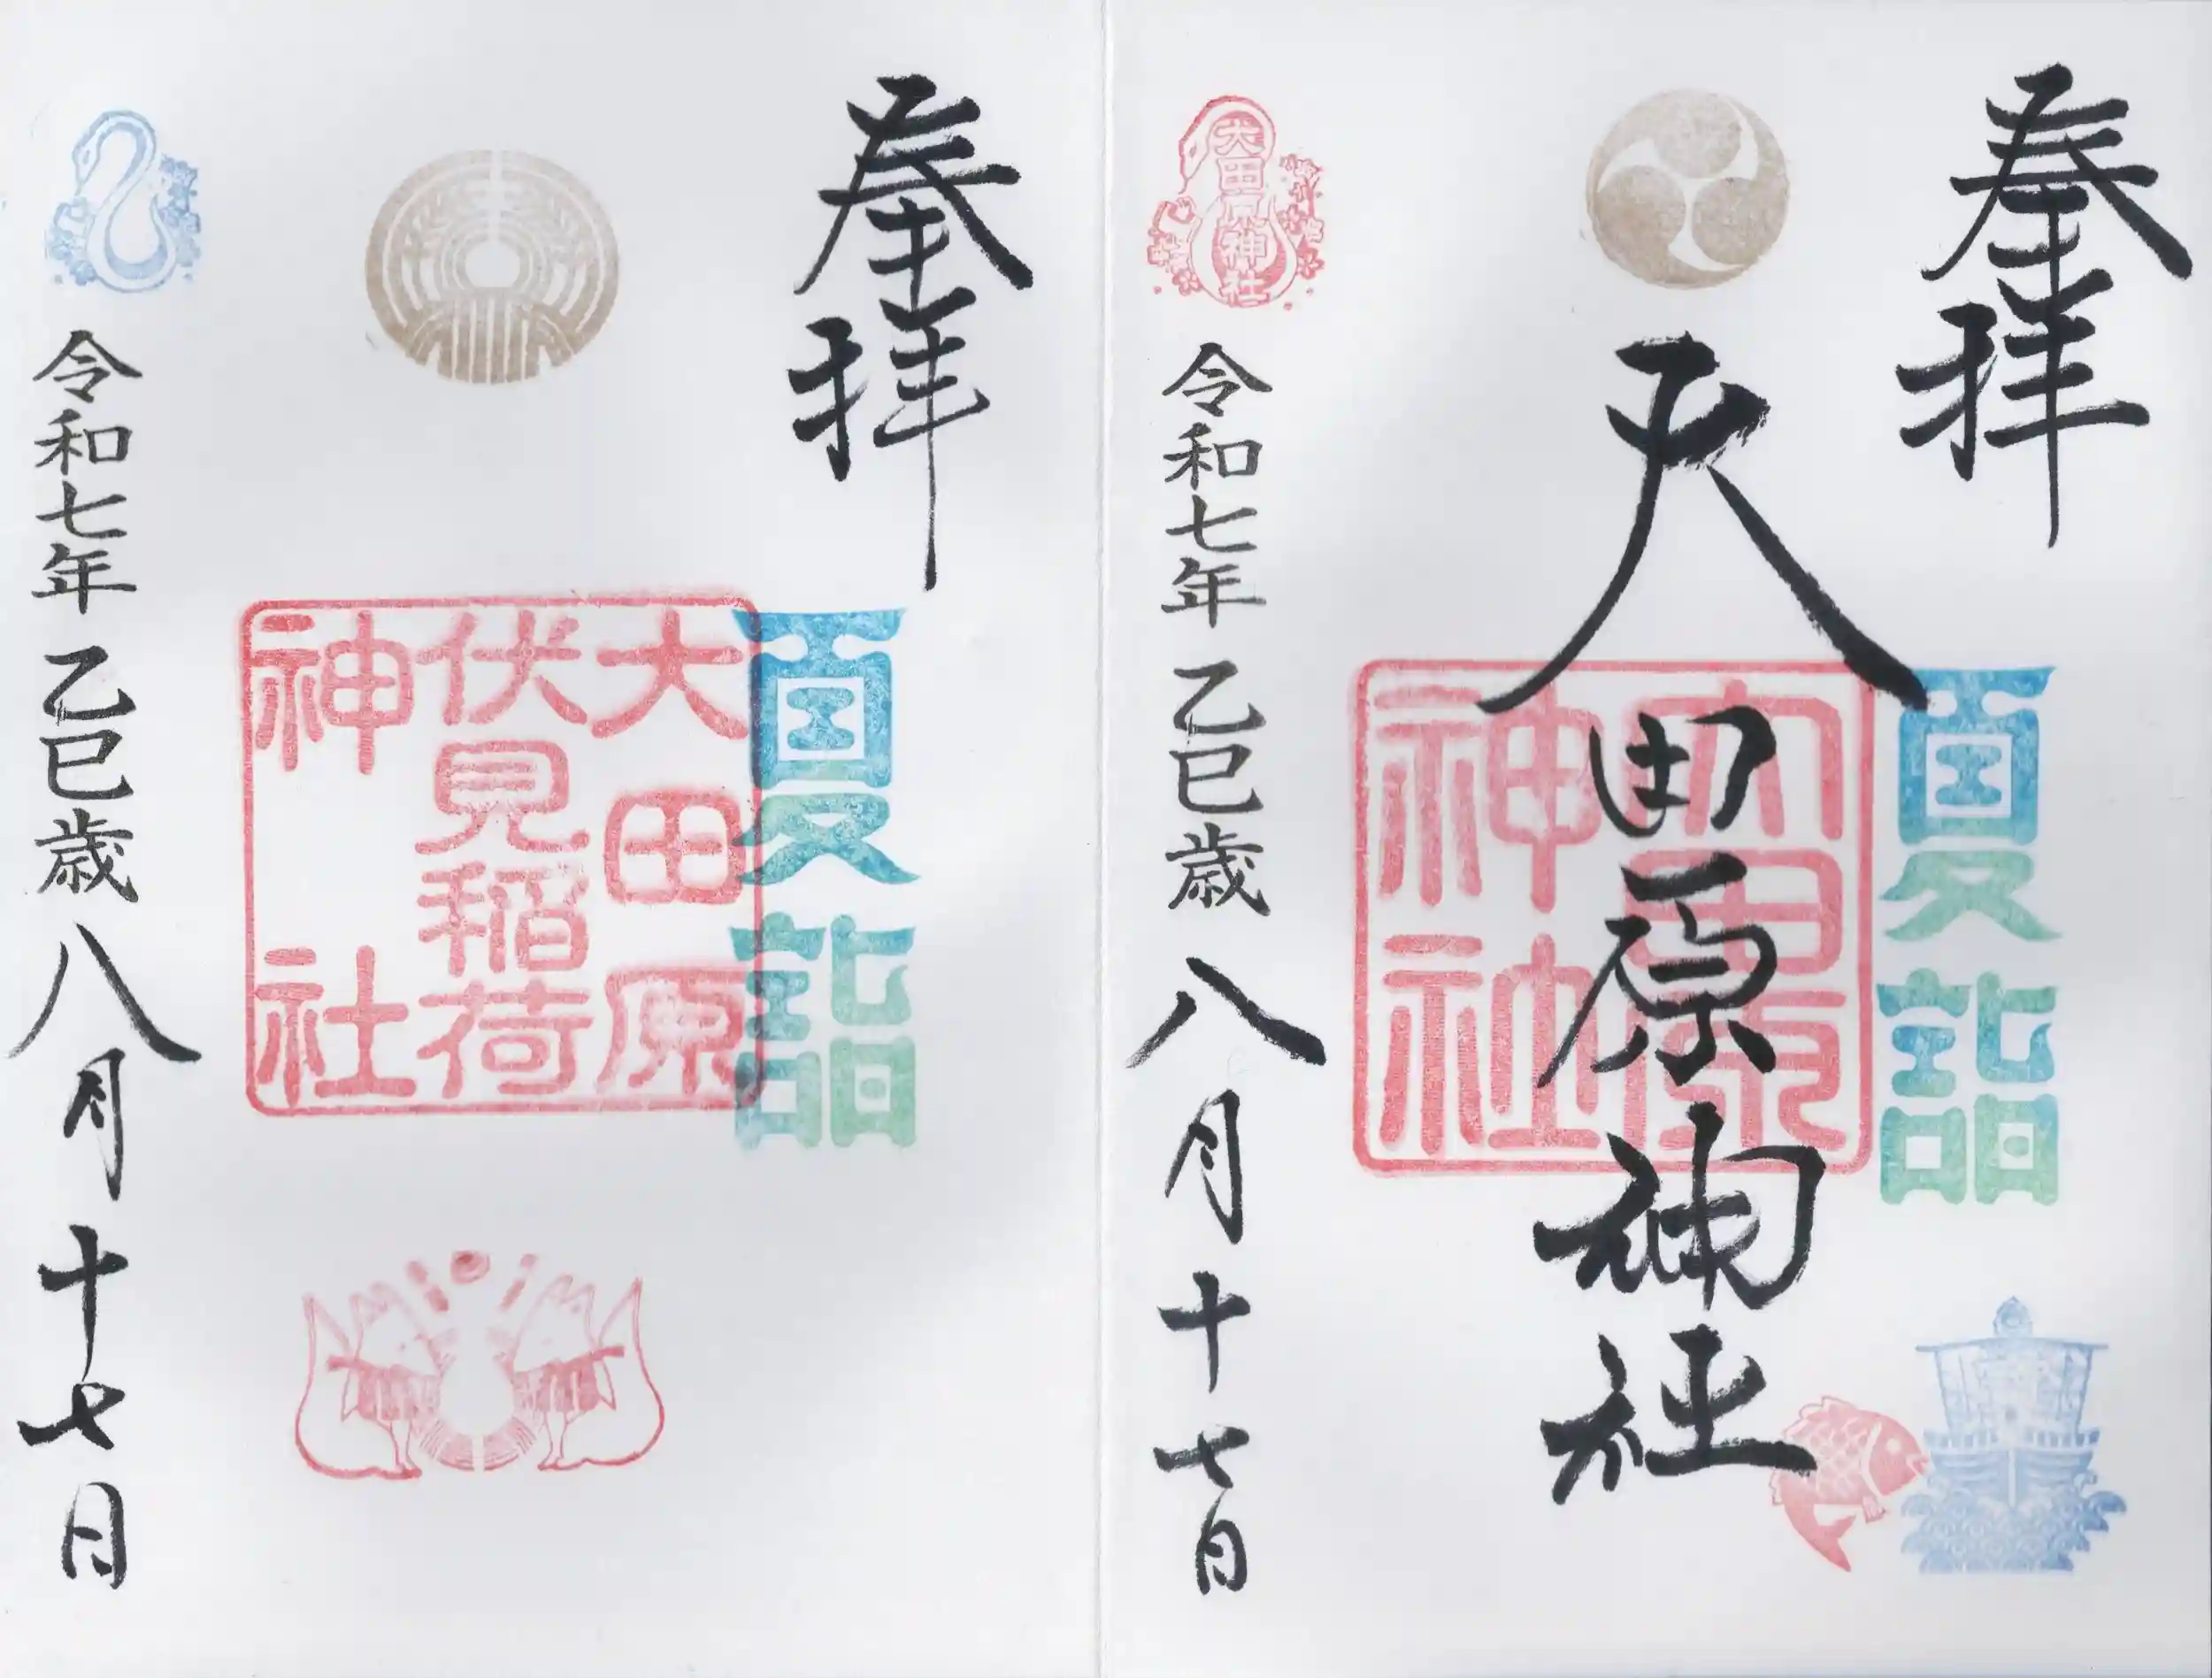 奉拝
夏詣
大田原神社
大田原
神社
大田原神社
令和七年 乙巳歳 八月十七日
奉拝
夏詣
大田原
伏見稲荷
神社
令和七年 乙巳歳 八月十七日